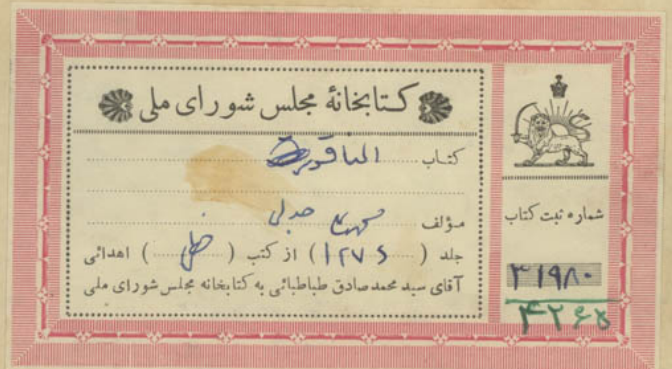 کتابخانهٔ مجلس شورای ملی
کتاب الیاقوتة
مؤلف
جلد ( ۱۲۷۶ ) از کتب ( خطی ) اهدائی
آقای سید محمدصادق طباطبائی به کتابخانه مجلس شورای ملی
شماره ثبت کتاب
۳۱۹۸۰